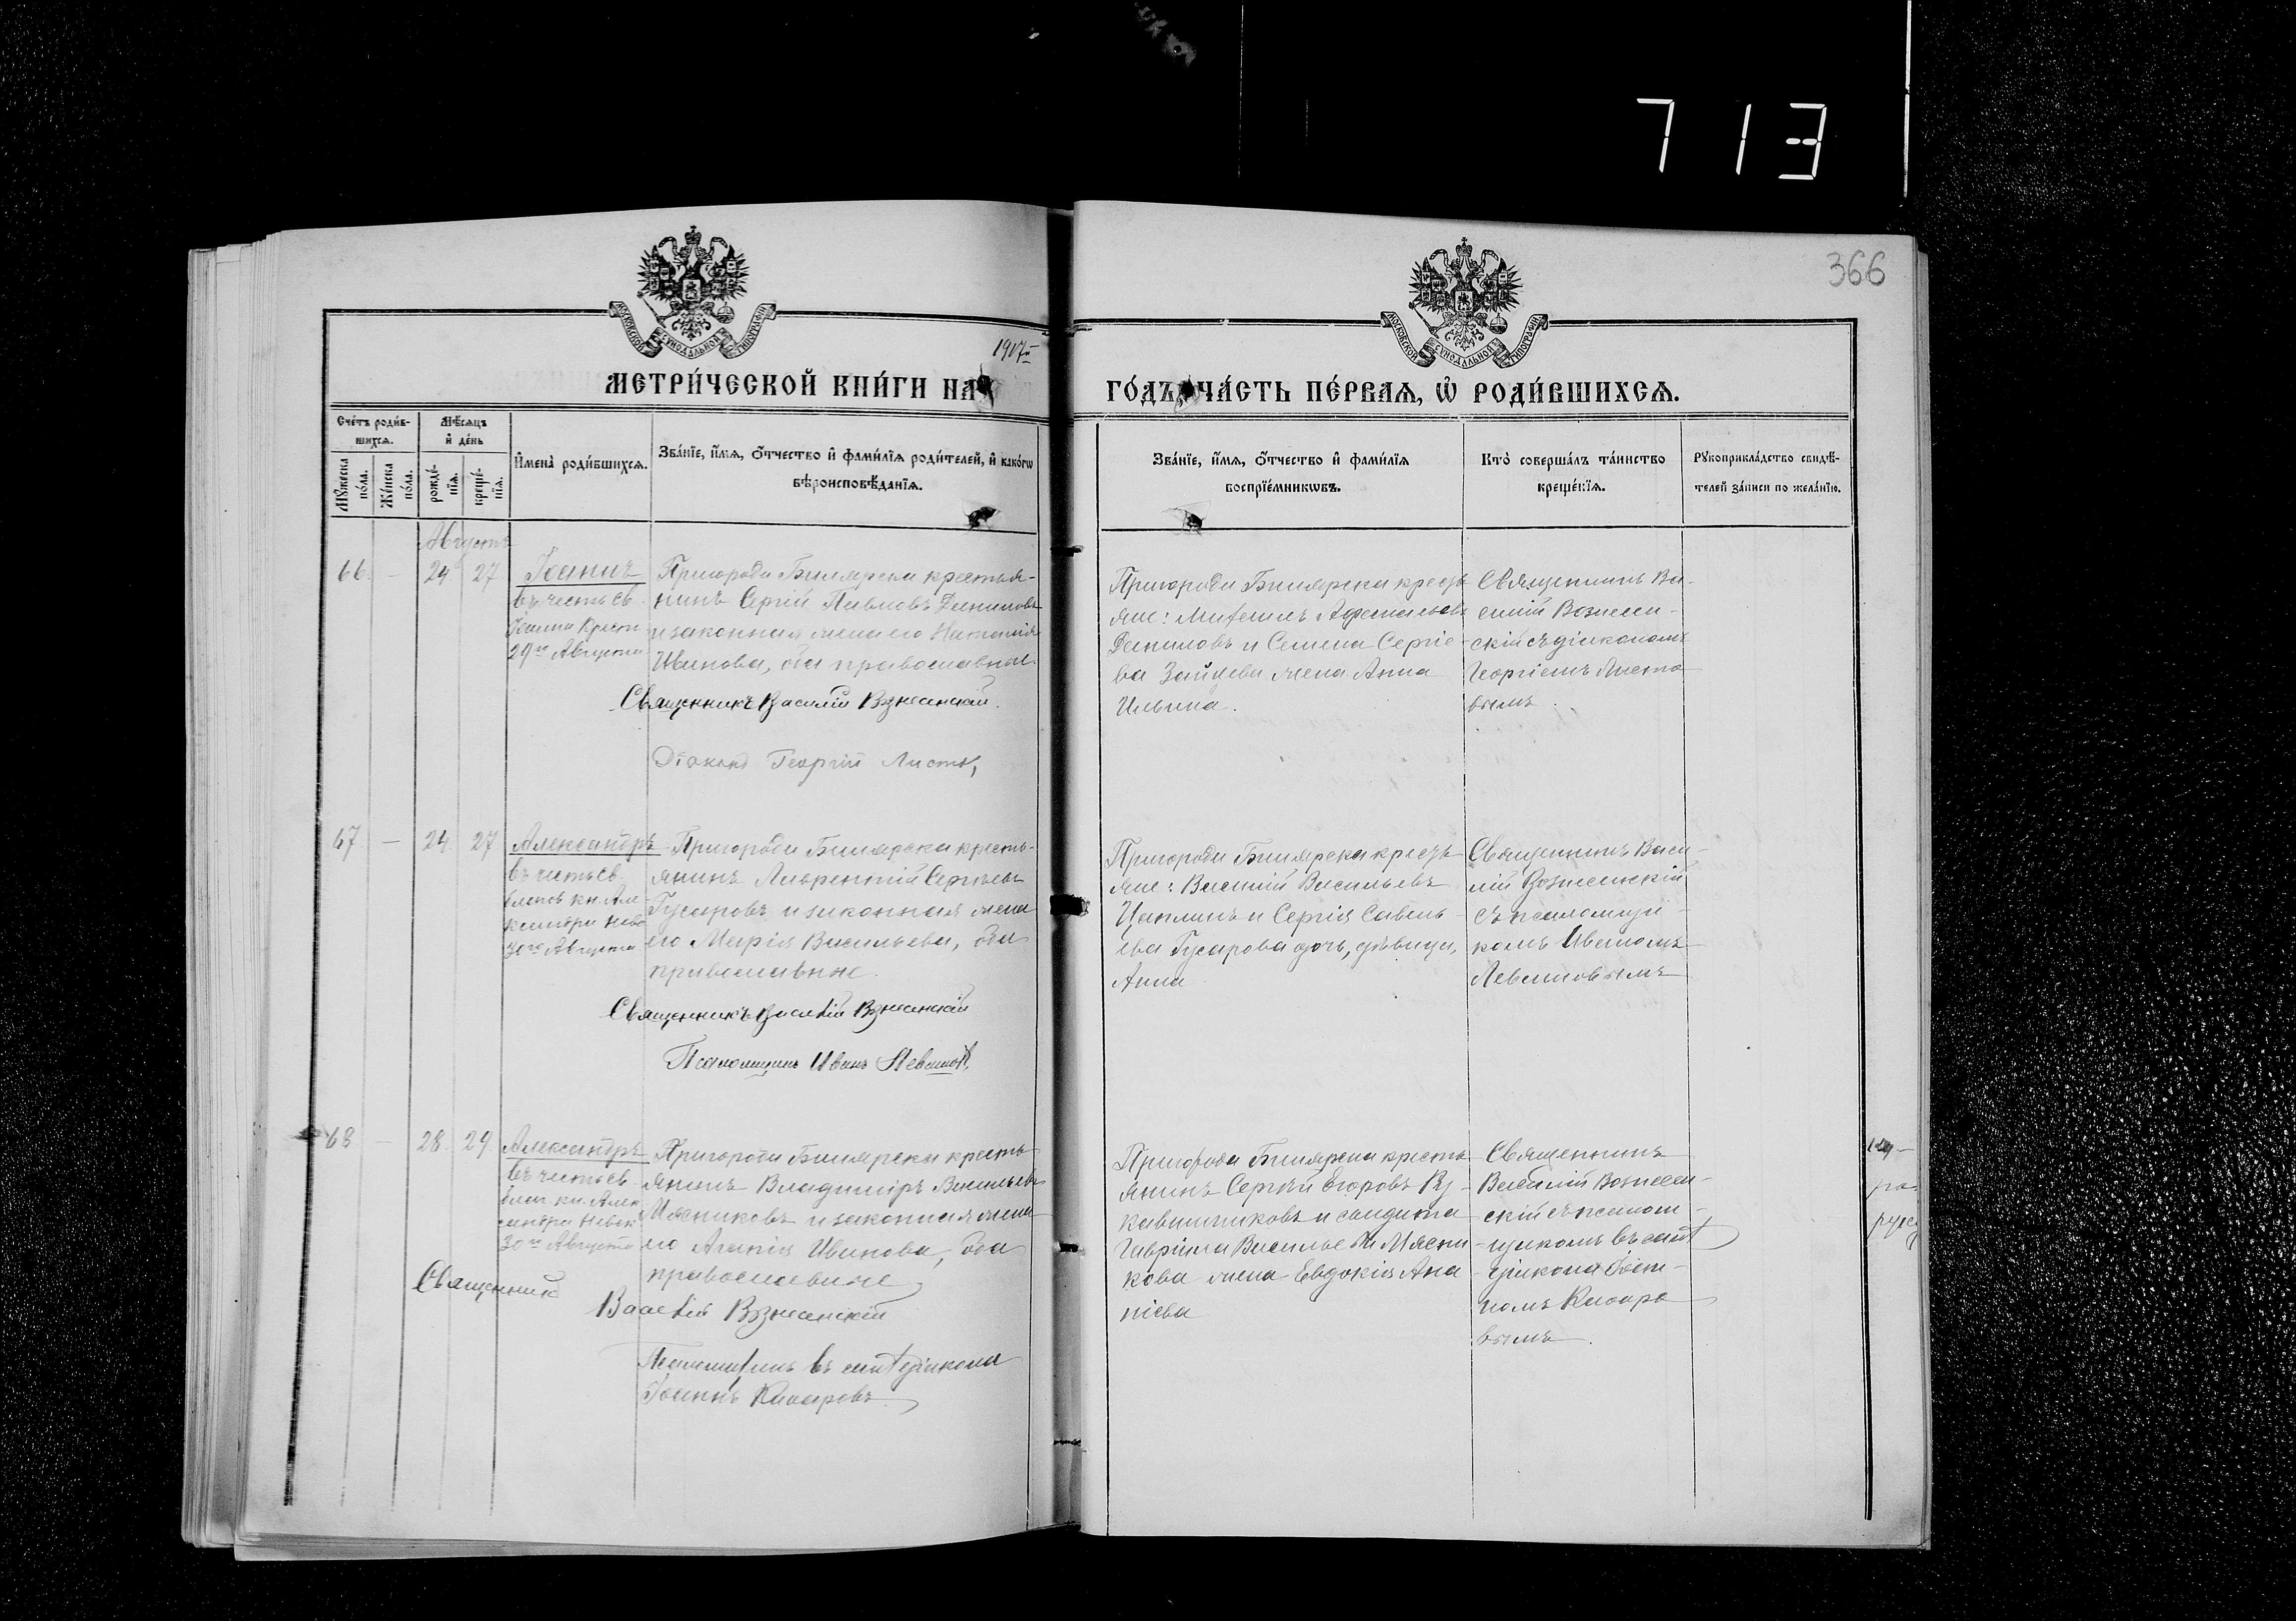 713
366
МОСКОВСКОЙ СУНОДАЛЬНОЙ ТИПОГРАФІИ
МОСКОВСКОЙ СУНОДАЛЬНОЙ ТИПОГРАФІИ
1917й
МЕТРИ́ЧЕСКОЙ КНИ́ГИ НА
ГО́ДЪ, ЧА́СТЬ ПЕ́РВАЯ, Ѡ҆ РОДИ́ВШИХСЯ.
Сче́тъ роди́в-
шихся.
Мѣ́сяцъ
и҆ де́нь
Мꙋ́жеска по́ла.
Же́нска по́ла.
рожде́-
нїя.
креще́-
нїя.
И҆мена̀ роди́вшихся.
Зва́нїе, и҆́мя, ѻ҆́тчество и҆ фами́лїя роди́телей, и҆ како́гѡ
вѣроисповѣ́данїя.
Зва́нїе, и҆́мя, ѻ҆́тчество и҆ фами́лїя
воспрїе́мникѡвъ.
Кто̀ соверша́лъ та́инство
креще́нїя.
Рꙋкоприкла́дство свидѣ́-
телей за́писи по жела́нїю.
Августъ
66. - 24 27 Іоаннъ
въ честь св.
Іоанна Крест.
29го Августа
Пригорода Билярска крестья-
нинъ Сергій Павловъ Даниловъ
и законная жена его Наталія
Иванова, оба православные.
Священникъ Василій Вознесенскій.
Діаконъ Георгій Листовъ
Пригорода Билярска кресть
яне: Михаилъ Афанасьевъ
Даниловъ и Семена Сергіе-
ва Зайцева жена Анна
Ильина.
Священникъ Ва-
силій Вознесен-
скій съ діакономъ
Георгіемъ Листо
вымъ.
67 - 24 27 Александръ
въ честь св.
благов. кн. Але
ксандра Невс
30го Августа
Пригорода Билярска кресть-
янинъ Лаврентій Сергѣевъ
Гусаровъ и законная жена
его Марія Васильева, оба
православные.
Священникъ Василій Вознесенскій
Псаломщикъ Иванъ Левановъ
Пригорода Билярска кресть
яне: Василій Васильевъ
Цаплинъ и Сергія Савель-
ева Гусарова дочь, дѣвица,
Анна
Священникъ Васи-
лій Вознесенскій
съ псаломщи-
комъ Иваномъ
Левановымъ
68 - 28 29 Александръ
въ честь св.
благ. кн. Алек
сандра Невск
30го Августа
Пригорода Билярска кресть
янинъ Владиміръ Васильевъ
Мясниковъ и законная жена
его Агапія Иванова, оба
православные
Священникъ
Василій Вознесенскій
Псаломщикъ въ санѣ діакона
Іоаннъ Комаровъ
Пригорода Билярска кресть
янинъ Сергѣй Егоровъ Ру-
кавишниковъ и солдата
Гавріила Васильева Мясни
кова жена Евдокія Ана
ніева
Священникъ
Василій Вознесен-
скій съ псалом-
щикомъ въ санѣ
діакона Іоан-
номъ Комаро
вымъ.